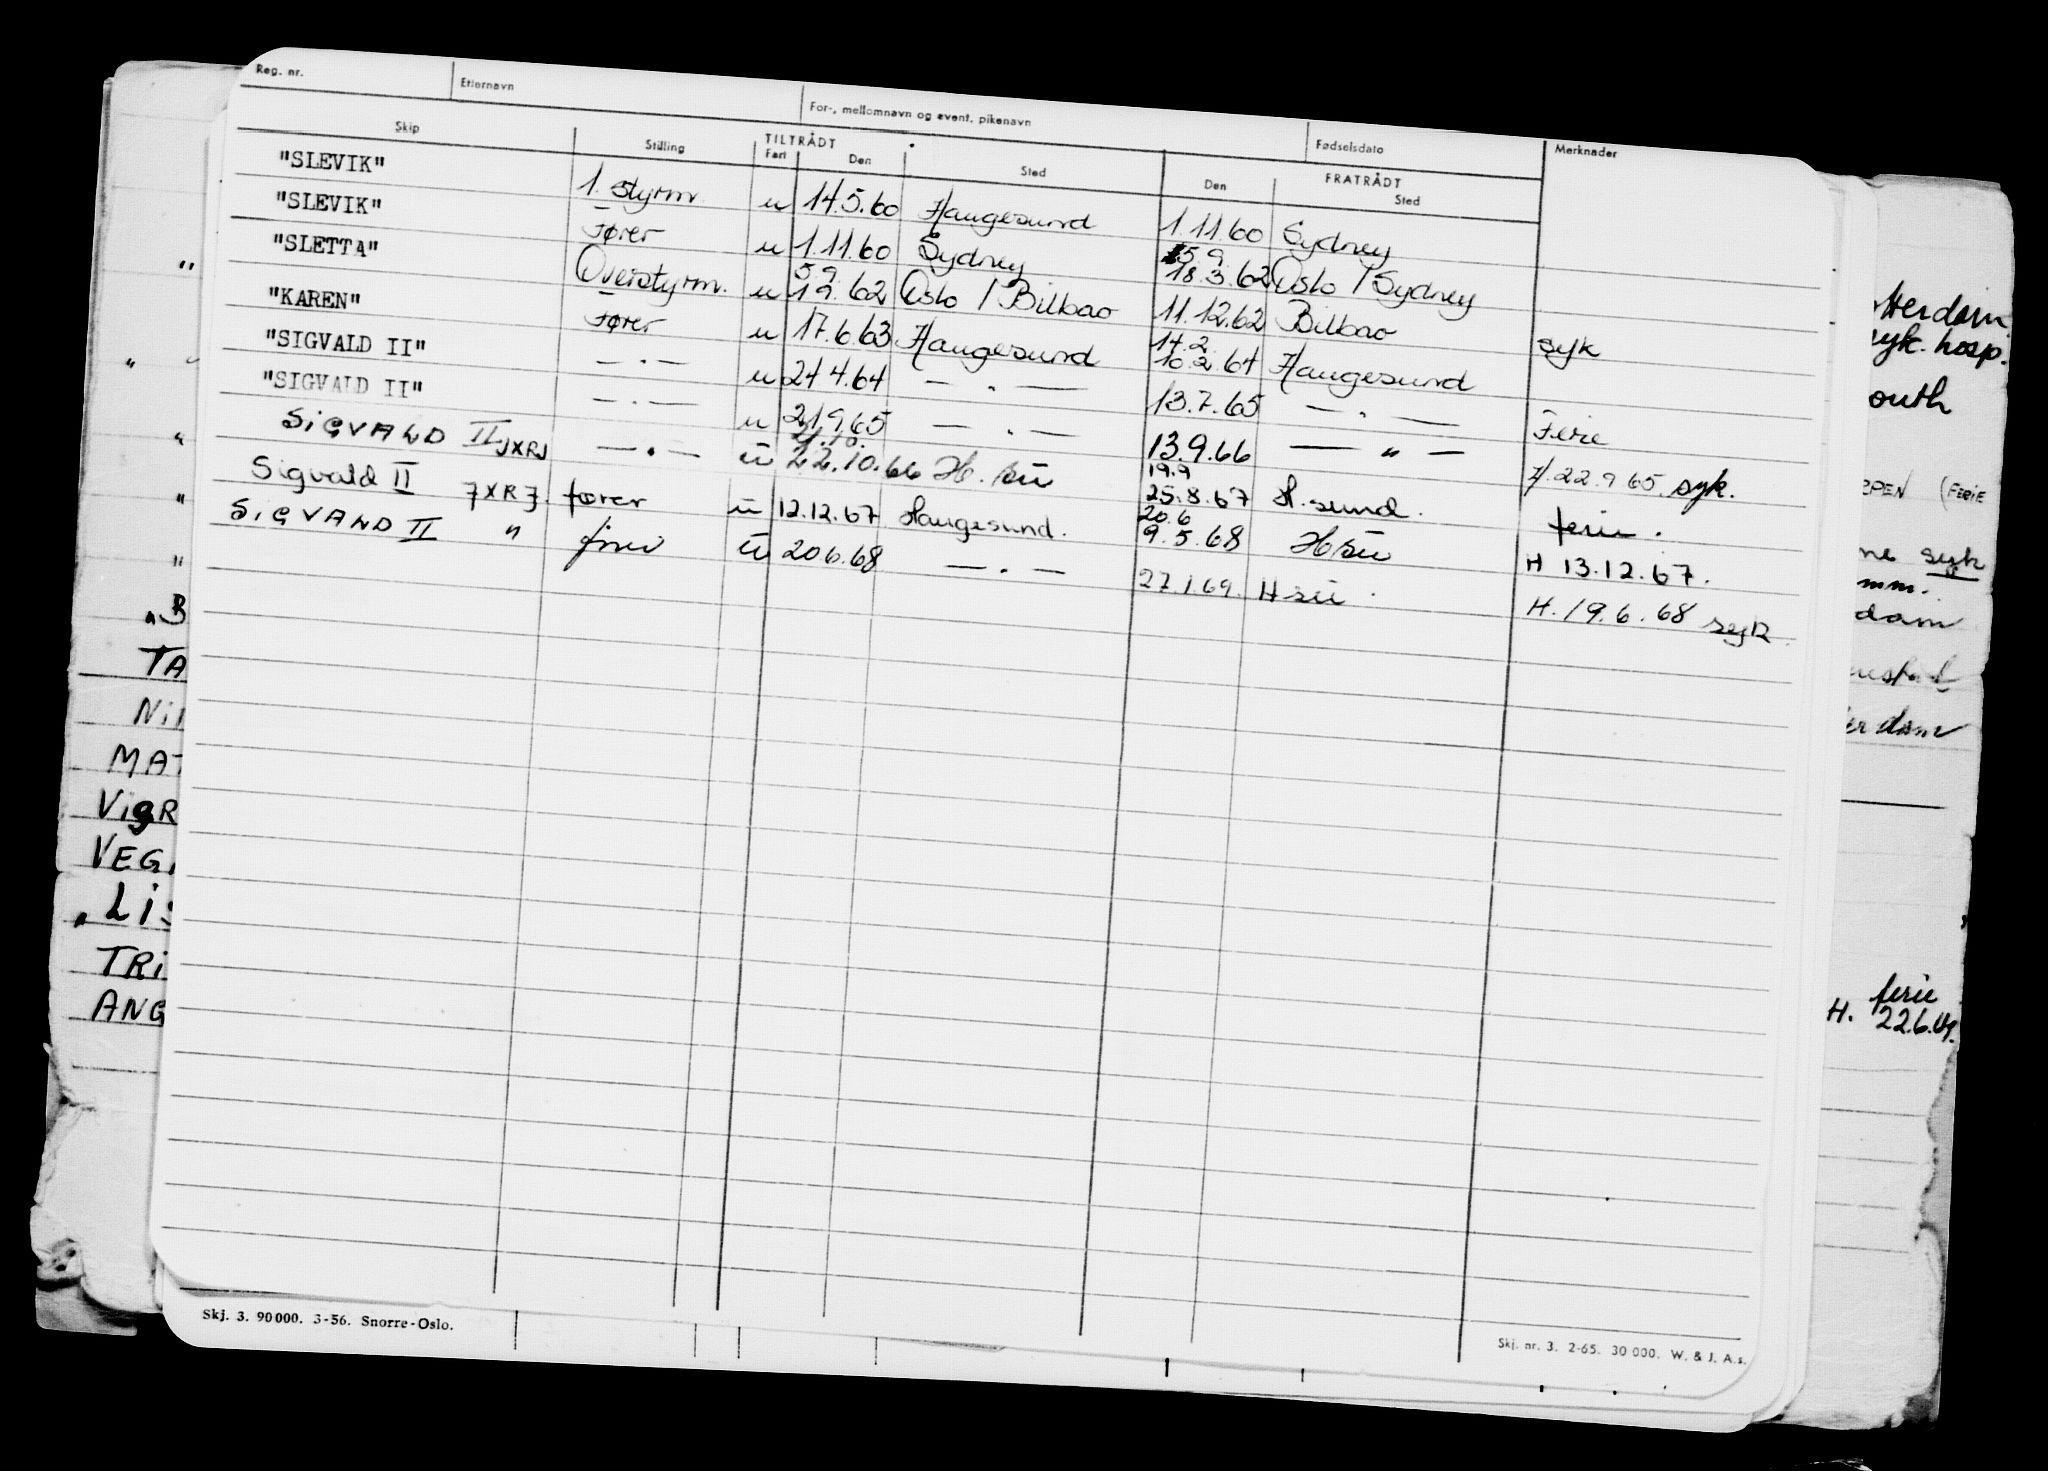 Reg. nr. Etternavn For-, mellomnavn og event. pikenavn Fødselsdato Merknader
Skip Stilling TILTRÅDT FRATRÅDT
Fart Den Sted Den Sted
"SLEVIK" 1. styrm. u 14.5.60 Haugesund 1.11.60 Sydney
"SLEVIK" Fører u 1.11.60 Sydney 18.3.62 Oslo / Sydney
5.9. 5.9.
"SLETTA" Overstyrm. u 1.9.62 Oslo / Bilbao 11.12.62 Bilbao syk
"KAREN" Fører u 17.6.63 Haugesund 10.2.64 Haugesund
14.2
"SIGVALD II" — . — u 24.4.64 — . — 13.7.65 — . — Ferie
"SIGVALD II" — . — u 21.9.65 — . — 13.9.66 — " — H. 22.9.65. syk.
21.10. 19.9
SiGVALD II JXRJ — . — ū 22.10.66 H. sū 25.8.67 H. sund. ferie.
20.6
Sigvald II JXRJ. fører ū 12.12.67 Haugesund. 9.5.68 H sū H 13.12.67.
SiGVALD II " fører ū 20.6.68 — . — 27.1.69. H sū . H. 19.6.68 syk.
"
"
"
"
"
"B
TA
MAT
VEG
"Lis
TRi
ANG
syk. hosp.
outh
(FERIE
ne syk
mm.
dam
erdam
ferie
H. 22.6.
Skj. 3. 90000. 3-56. Snorre-Oslo.
Skj. nr. 3. 2-65. 30 000. W. & J. A.s.